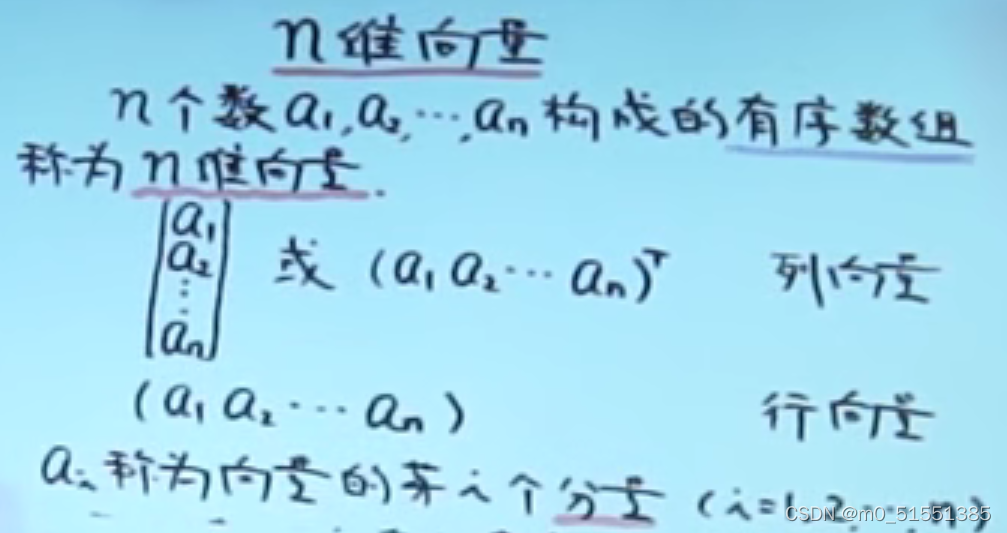 n维向量
n个数a₁,a₂,…,aₙ构成的有序数组
称为n维向量.
[a₁
a₂
⋮
aₙ] 或 (a₁ a₂ … aₙ)ᵀ 列向量
(a₁ a₂ … aₙ) 行向量
aᵢ称为向量的第i个分量 (i=1,2,…,n)
CSDN @m0_51551385